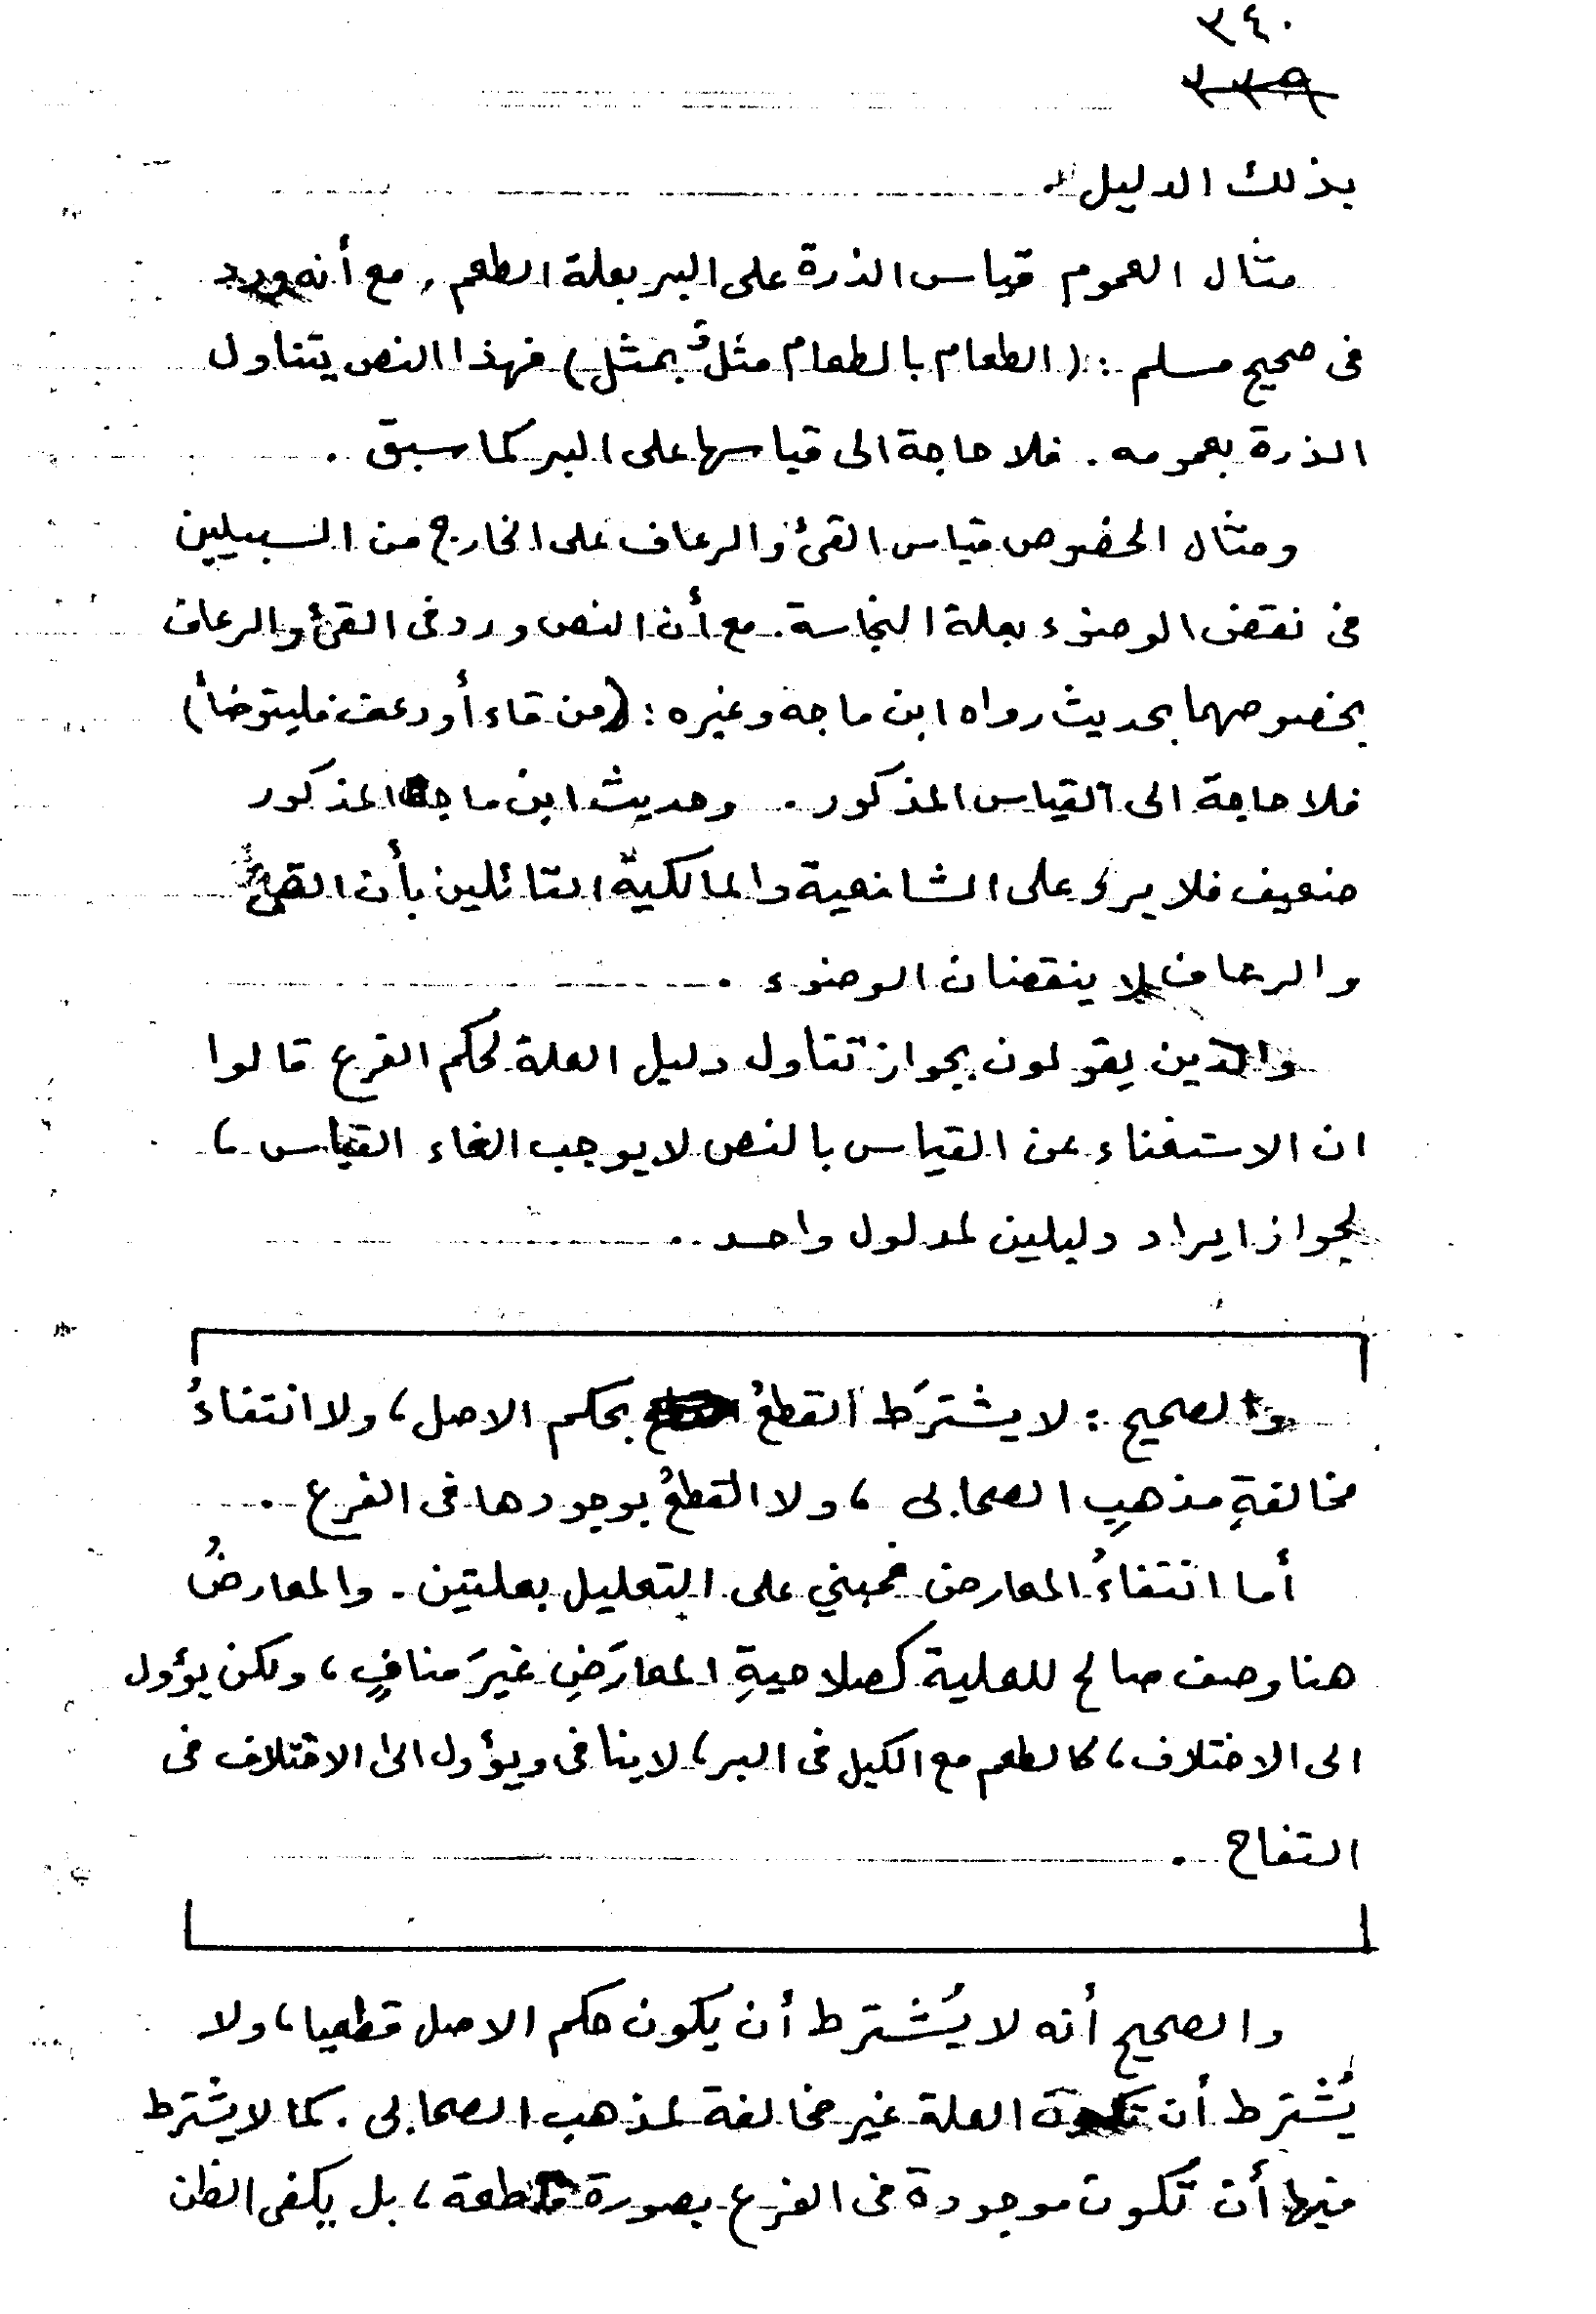 ٣٤٠
٣٣٩
بذلك الدليل .
مثال العموم قياس الذرة على البر بعلة الطعم , مع أنه ورد
فى صحيح مسلم : ( الطعام بالطعام مثلٌ بمثل ) فهذا النص يتناول
الذرة بعمومه . فلا حاجة الى قياسها على البر كما سبق .
ومثال الخصوص قياس القئ والرعاف على الخارج من السبيلين
فى نقض الوضوء بعلة النجاسة . مع أن النص ورد فى القئ والرعاف
بخصوصهما بحديث رواه ابن ماجة وغيره : ( من قاء أو رعف فليتوضأ )
فلا حاجة الى القياس المذكور . وحديث ابن ماجة المذكور
ضعيف فلا يرد على الشافعية والمالكية القائلين بأن القئ
والرعاف لا ينقضان الوضوء .
والذين يقولون بجواز تناول دليل العلة لحكم الفرع قالوا
ان الاستغناء عن القياس بالنص لا يوجب الغاء القياس ،
لجواز ايراد دليلين لمدلول واحد .
والصحيح : لا يشترَط القطعُ بحكم الاصل ، ولا انتفاءُ
مخالفةِ مذهبِ الصحابى ، ولا القطعُ بوجودها فى الفرع .
أما انتفاءُ المعارض فمبني على التعليل بعلتين . والمعارضُ
هنا وصف صالح للعلية كصلاحيةِ المعارَضِ غيرَ منافٍ ، ولكن يؤول
الى الاختلاف ، كالطعم مع الكيل فى البر ، لا ينافى ويؤول الى الاختلاف فى
التفاح .
والصحيح أنه لا يُشترط أن يكون حكم الاصل قطعيا ، ولا
يُشترط أن تكون العلة غير مخالفة لمذهب الصحابى . كما لا يشترط
فيها أن تكون موجودة فى الفرع بصورة قاطعة ، بل يكفى الظن